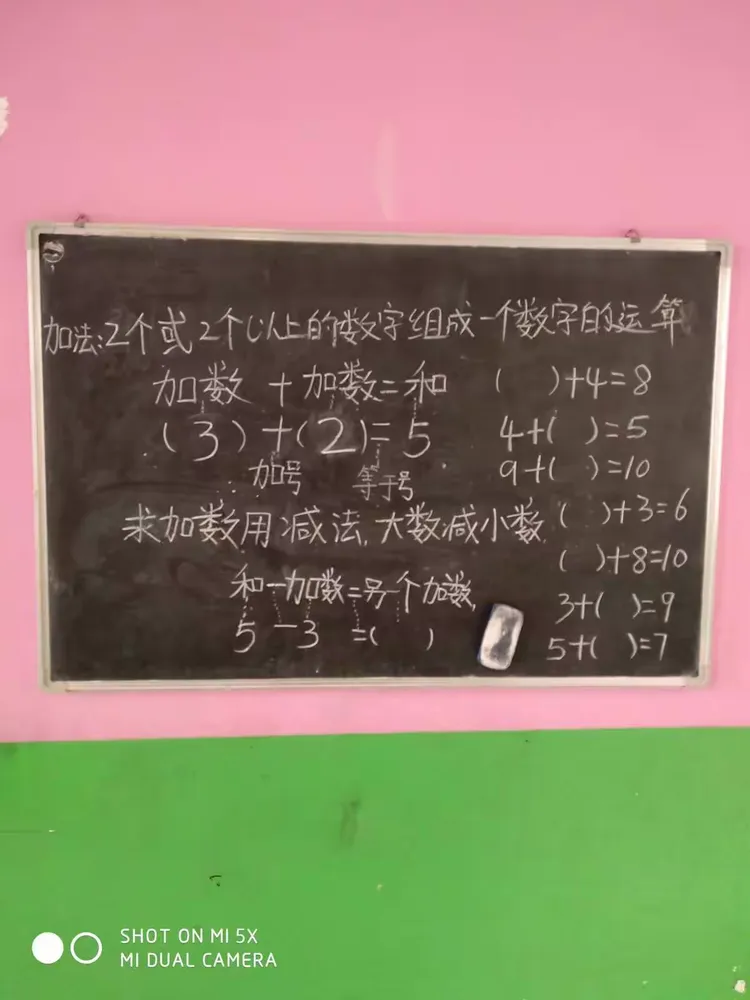 加法:2个或2个以上的数字组成一个数字的运算
加数 + 加数=和
(3)+(2)=5
加号 等于号
求加数用减法,大数减小数
和-加数=另一个加数
5-3=( )
( )+4=8
4+( )=5
9+( )=10
( )+3=6
( )+8=10
3+( )=9
5+( )=7
SHOT ON MI 5X
MI DUAL CAMERA